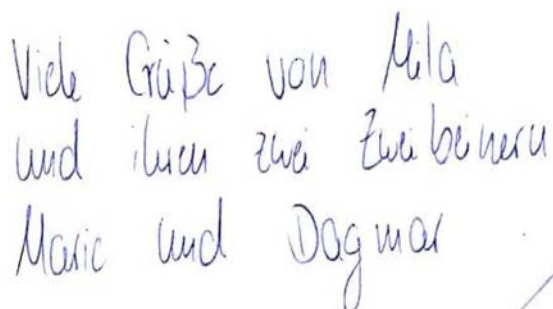 Viele Grüße von Mila
und ihren zwei Zweibeinern
Marie und Dagmar